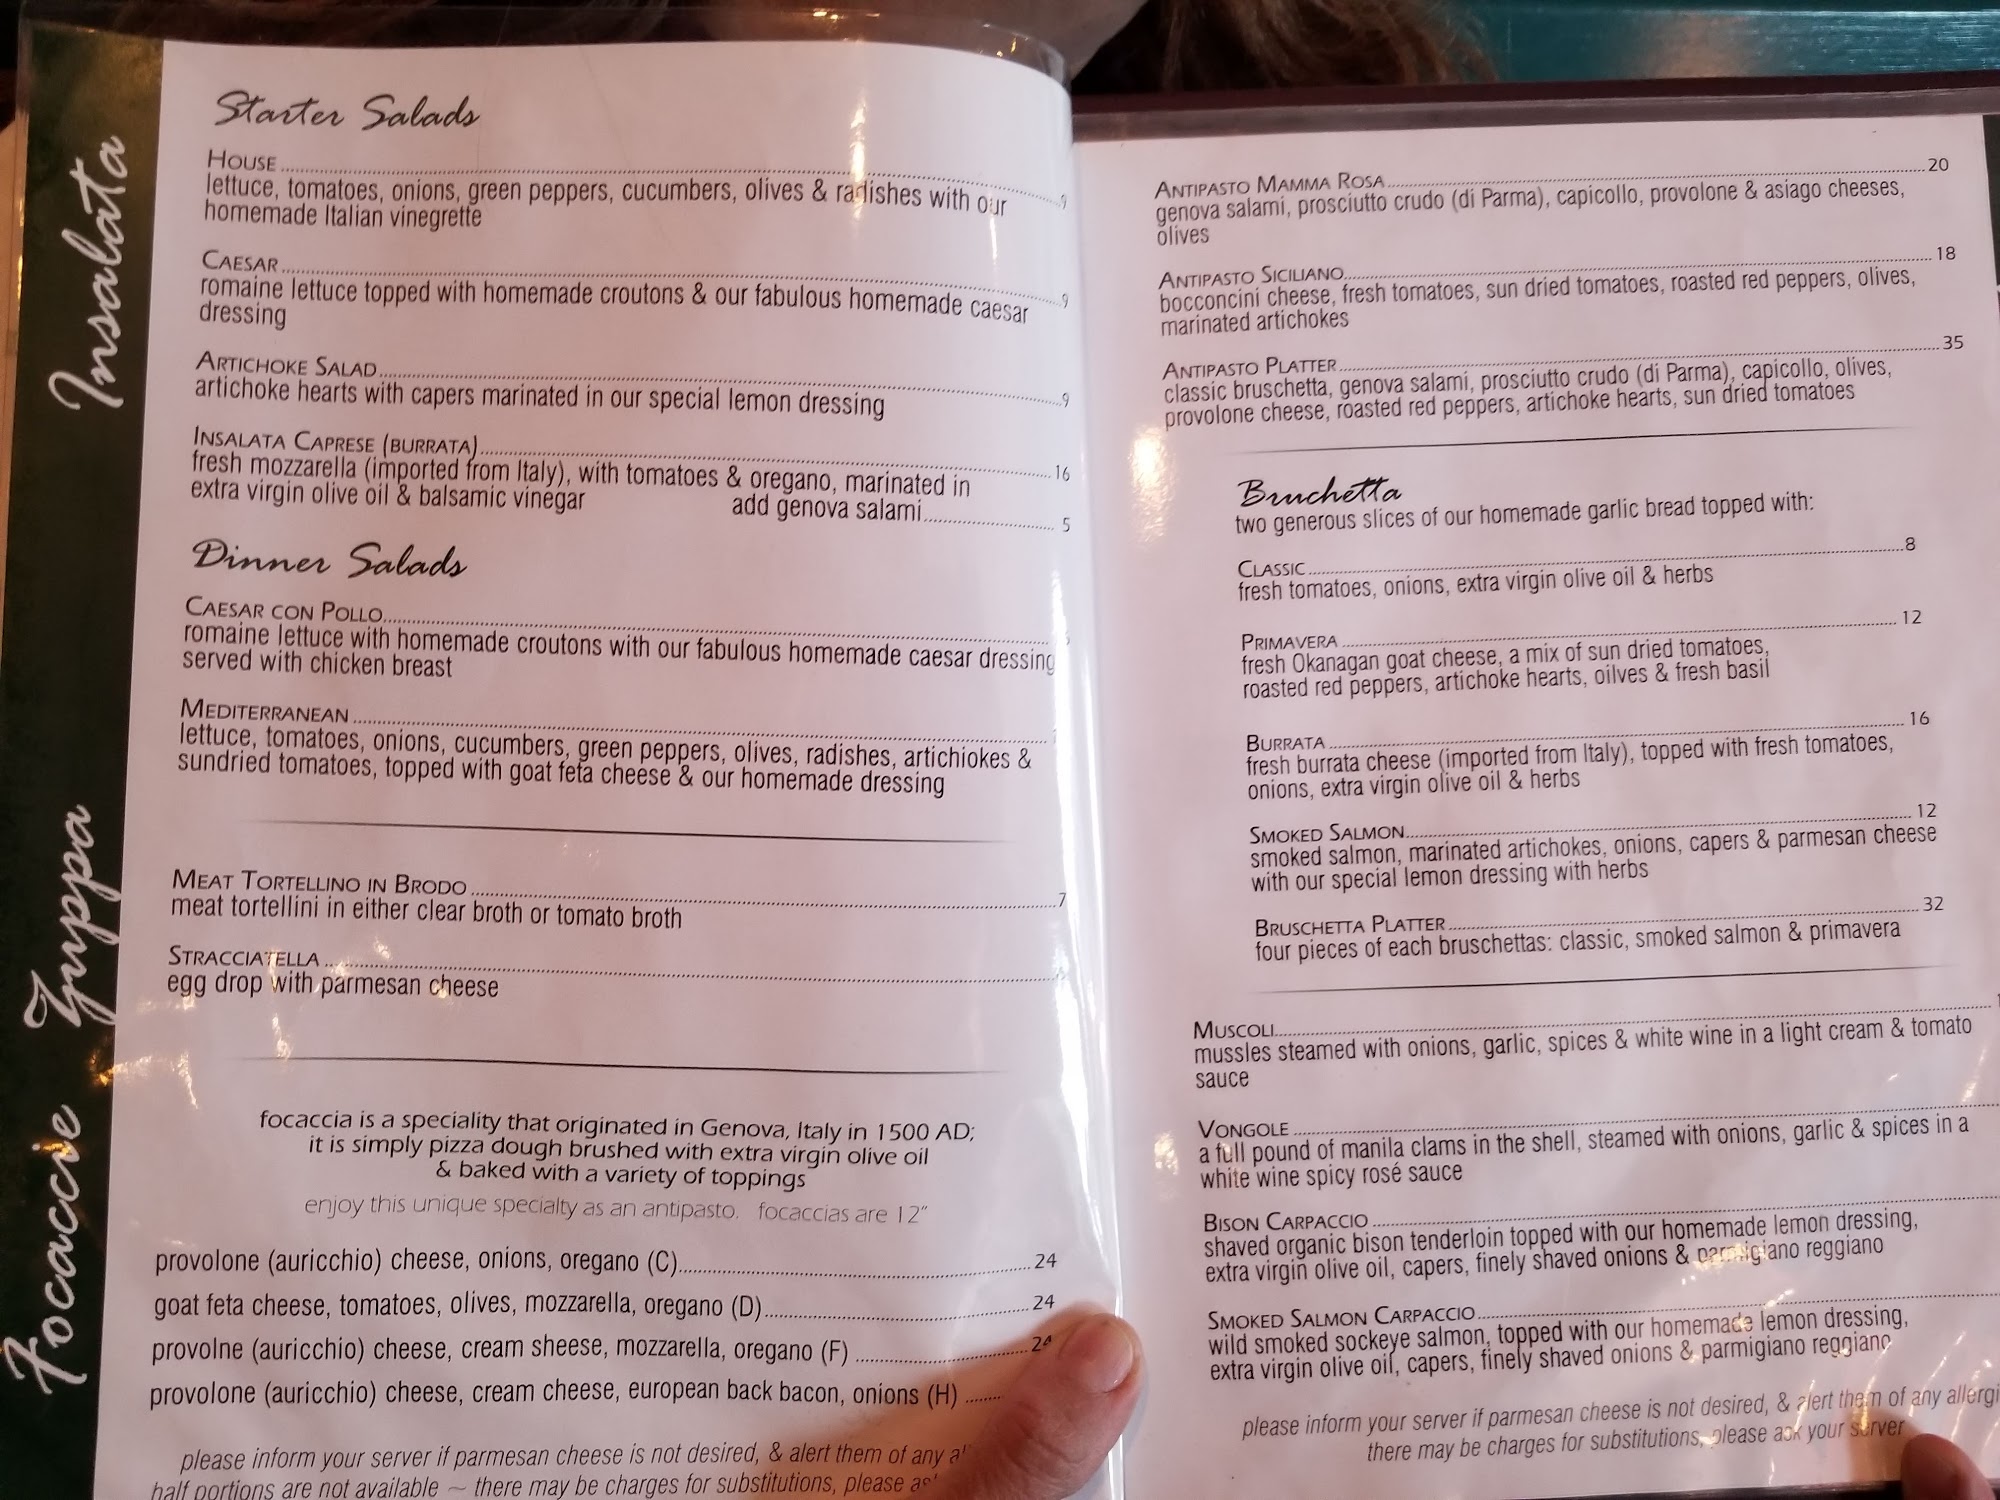 Insalata
Starter Salads
HOUSE 9
lettuce, tomatoes, onions, green peppers, cucumbers, olives & radishes with our
homemade Italian vinegrette
CAESAR 9
romaine lettuce topped with homemade croutons & our fabulous homemade caesar
dressing
ARTICHOKE SALAD 9
artichoke hearts with capers marinated in our special lemon dressing
INSALATA CAPRESE (BURRATA) 16
fresh mozzarella (imported from Italy), with tomatoes & oregano, marinated in
extra virgin olive oil & balsamic vinegar add genova salami 5
Dinner Salads
CAESAR CON POLLO
romaine lettuce with homemade croutons with our fabulous homemade caesar dressing
served with chicken breast
MEDITERRANEAN
lettuce, tomatoes, onions, cucumbers, green peppers, olives, radishes, artichiokes &
sundried tomatoes, topped with goat feta cheese & our homemade dressing
Zuppa
MEAT TORTELLINO IN BRODO 7
meat tortellini in either clear broth or tomato broth
STRACCIATELLA
egg drop with parmesan cheese
Focaccie
focaccia is a speciality that originated in Genova, Italy in 1500 AD;
it is simply pizza dough brushed with extra virgin olive oil
& baked with a variety of toppings
enjoy this unique specialty as an antipasto. focaccias are 12"
provolone (auricchio) cheese, onions, oregano (C) 24
goat feta cheese, tomatoes, olives, mozzarella, oregano (D) 24
provolne (auricchio) cheese, cream sheese, mozzarella, oregano (F) 24
provolone (auricchio) cheese, cream cheese, european back bacon, onions (H)
please inform your server if parmesan cheese is not desired, & alert them of any
half portions are not available ~ there may be charges for substitutions, please
ANTIPASTO MAMMA ROSA 20
genova salami, prosciutto crudo (di Parma), capicollo, provolone & asiago cheeses,
olives
ANTIPASTO SICILIANO 18
bocconcini cheese, fresh tomatoes, sun dried tomatoes, roasted red peppers, olives,
marinated artichokes
ANTIPASTO PLATTER 35
classic bruschetta, genova salami, prosciutto crudo (di Parma), capicollo, olives,
provolone cheese, roasted red peppers, artichoke hearts, sun dried tomatoes
Bruchetta
two generous slices of our homemade garlic bread topped with:
CLASSIC 8
fresh tomatoes, onions, extra virgin olive oil & herbs
PRIMAVERA 12
fresh Okanagan goat cheese, a mix of sun dried tomatoes,
roasted red peppers, artichoke hearts, oilves & fresh basil
BURRATA 16
fresh burrata cheese (imported from Italy), topped with fresh tomatoes,
onions, extra virgin olive oil & herbs
SMOKED SALMON 12
smoked salmon, marinated artichokes, onions, capers & parmesan cheese
with our special lemon dressing with herbs
BRUSCHETTA PLATTER 32
four pieces of each bruschettas: classic, smoked salmon & primavera
MUSCOLI
mussles steamed with onions, garlic, spices & white wine in a light cream & tomato
sauce
VONGOLE
a full pound of manila clams in the shell, steamed with onions, garlic & spices in a
white wine spicy rosé sauce
BISON CARPACCIO
shaved organic bison tenderloin topped with our homemade lemon dressing,
extra virgin olive oil, capers, finely shaved onions & parmigiano reggiano
SMOKED SALMON CARPACCIO
wild smoked sockeye salmon, topped with our homemade lemon dressing,
extra virgin olive oil, capers, finely shaved onions & parmigiano reggiano
please inform your server if parmesan cheese is not desired, & alert them of any
there may be charges for substitutions, please ask your server